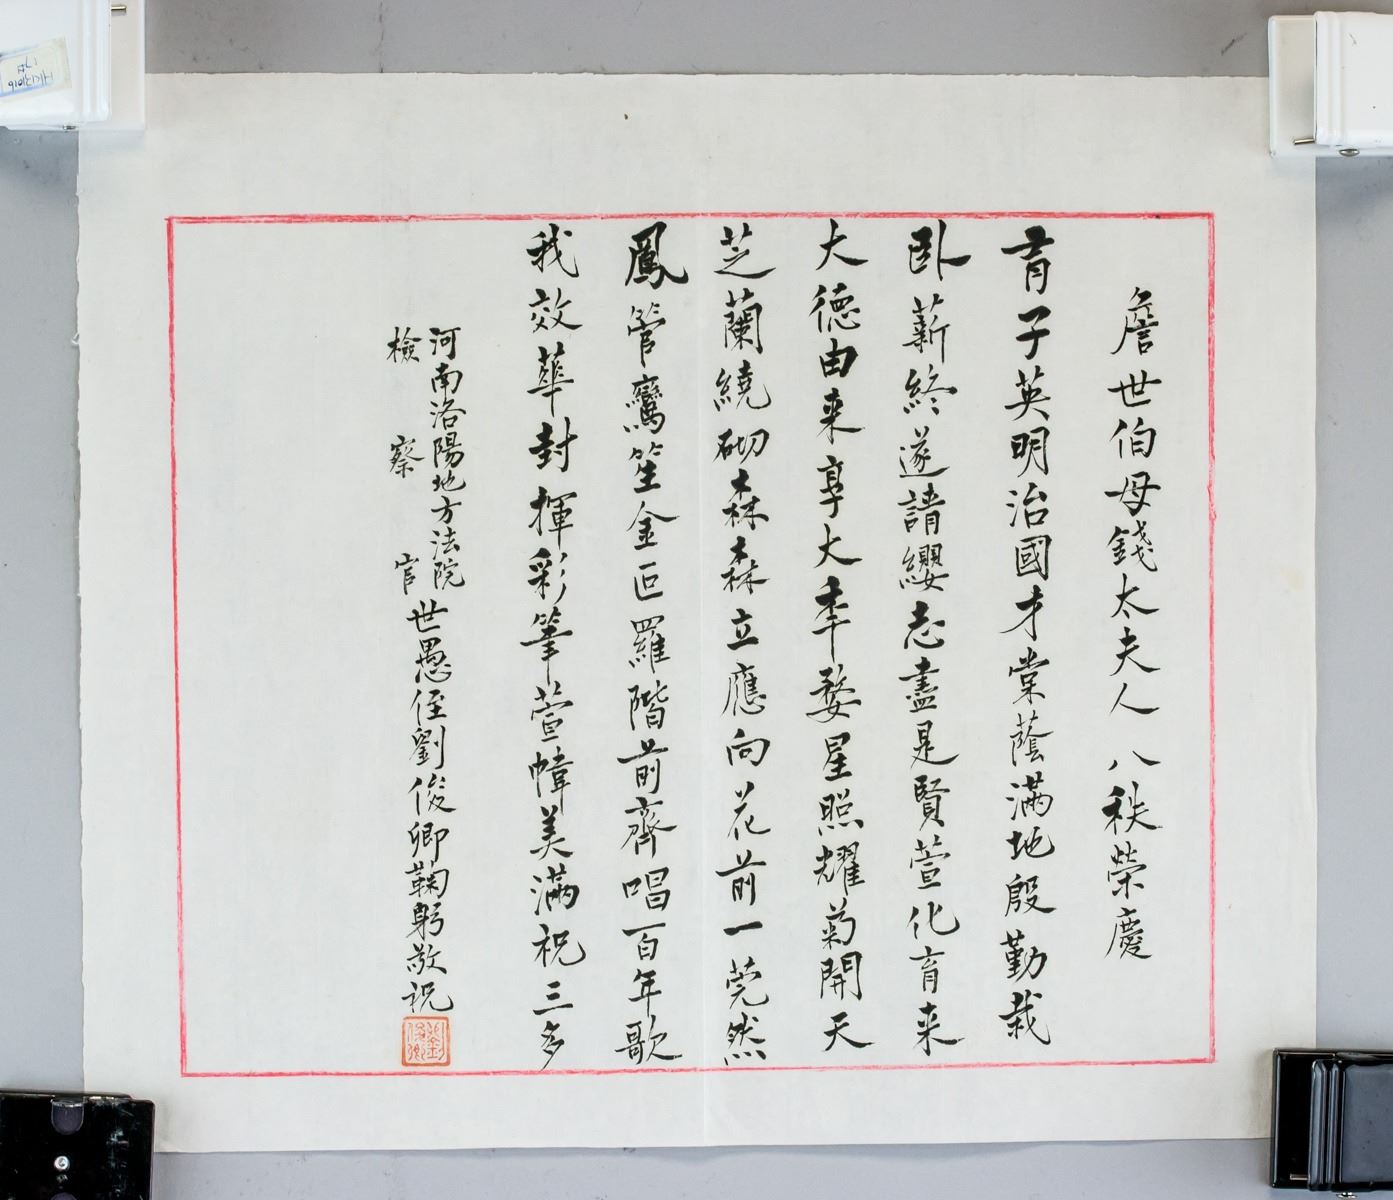 詹世伯母錢太夫人八秩榮慶
育子英明治國才棠蔭滿地殷勤栽
臥薪終遂請纓志盡是賢萱化育来
大德由来享大年婺星照耀菊開天
芝蘭繞砌森森立應向花前一莞然
鳳管鸞笙金叵羅階前齊唱百年歌
我效華封揮彩筆萱幃美滿祝三多
河南洛陽地方法院
檢察官
世愚侄劉俊卿鞠躬敬祝
劉俊卿